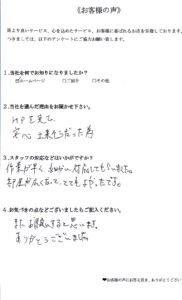 《お客様の声》
皆より良いサービス、心を込めたサービス、お客様に喜ばれるお店を目指しております。
つきましては、以下のアンケートにご協力お願い致します。
1.当社を何でお知りになりましたか?
☑ホームページ □ご紹介 □その他
2.当社を選んだ理由をお聞かせ下さい。
HPを見て
安心出来そうだった為
3.スタッフの対応などはいかがですか?
作業が早く、細かい対応してもらいました。
部屋が広くなって、とてもよかったです。
4.お気づきの点などございましたらご記入ください。
また お願いすると思います。
ありがとうございました。